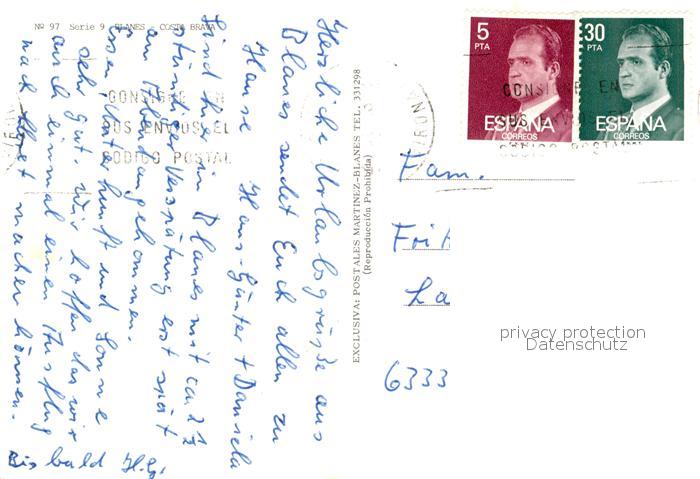 Nº 97 Serie 9 - BLANES - COSTA BRAVA
Herzliche Urlaubsgrüße aus
Blanes sendet Euch allen zu
Hause Hans-Günter + Daniela
Sind hier in Blanes mit ca 2½
stündiger Verspätung erst spät
am Abend angekommen.
Essen, Unterkunft und Sonne
sehr gut. Wir hoffen das wir
auch einmal einen Ausflug
nach machen können.
Bis bald
EXCLUSIVA: POSTALES MARTINEZ-BLANES TEL. 331298
(Reproducción Prohibida)
CONSIGNE EN
SUS ENVIOS EL
CODIGO POSTAL
5
PTA
ESPAÑA
CORREOS
30
PTA
ESPAÑA
CORREOS
CONSIGNE EN
SUS ENVIOS EL
CODIGO POSTAL
Fam.
La
6333
privacy protection
Datenschutz